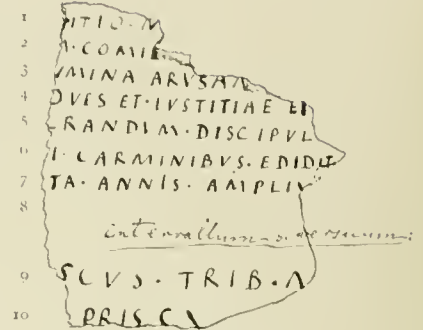 1 ITIO · N
2 A · COMIT
3 VMINA ARVSAN
4 OVES ET · IVSTITIAE ET
5 RANDIM · DISCIPVL
6 I · CARMINIBVS · EDIDIT
7 TA · ANNIS · AMPLIV
8
intervallum
9 SCVS · TRIB · A
10 PRISCA